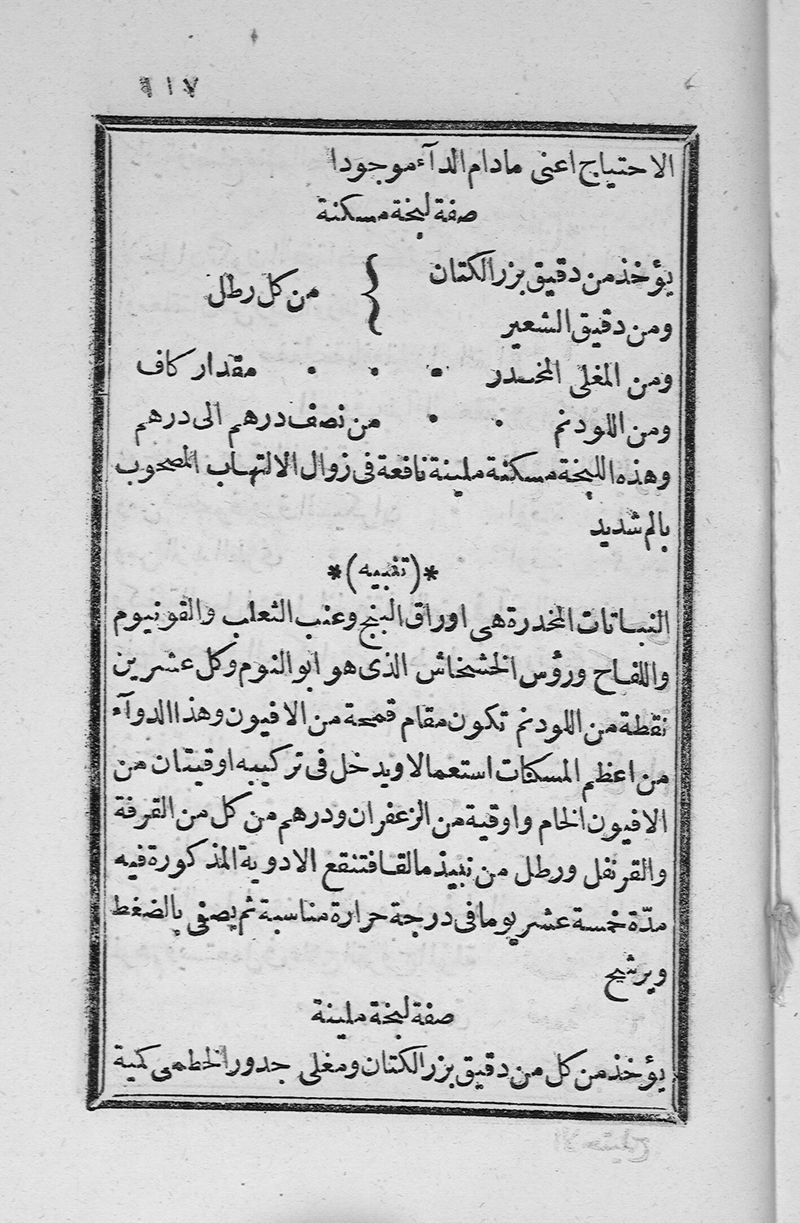 ١١٧
الاحتياج اعنى مادام الدآء موجودا
صفة لبخة مسكنة
يؤخذ من دقيق بزر الكتان
ومن دقيق الشعير } من كل رطل
ومن المغلى المخدر • • • مقدار كاف
ومن اللودنم • • من نصف درهم الى درهم
وهذه اللبخة مسكنة ملينة نافعة فى زوال الالتهاب المصحوب
بالم شديد
*(تنبيه)*
النباتات المخدرة هى اوراق البنج وعنب الثعلب والقونيوم
واللفاح ورؤس الخشخاش الذى هو ابو النوم وكل عشرين
نقطة من اللودنم تكون مقام قمحة من الافيون وهذا الدوآء
من اعظم المسكنات استعمالا ويدخل فى تركيبه اوقيتان من
الافيون الخام واوقية من الزعفران ودرهم من كل من القرفة
والقرنفل ورطل من نبيذ مالقا فتنقع الادوية المذكورة فيه
مدّة خمسة عشر يوما فى درجة حرارة مناسبة ثم يصفى بالضغط
ويرشح
صفة لبخة ملينة
يؤخذ من كل من دقيق بزر الكتان ومغلى جدور الخطمى كمية